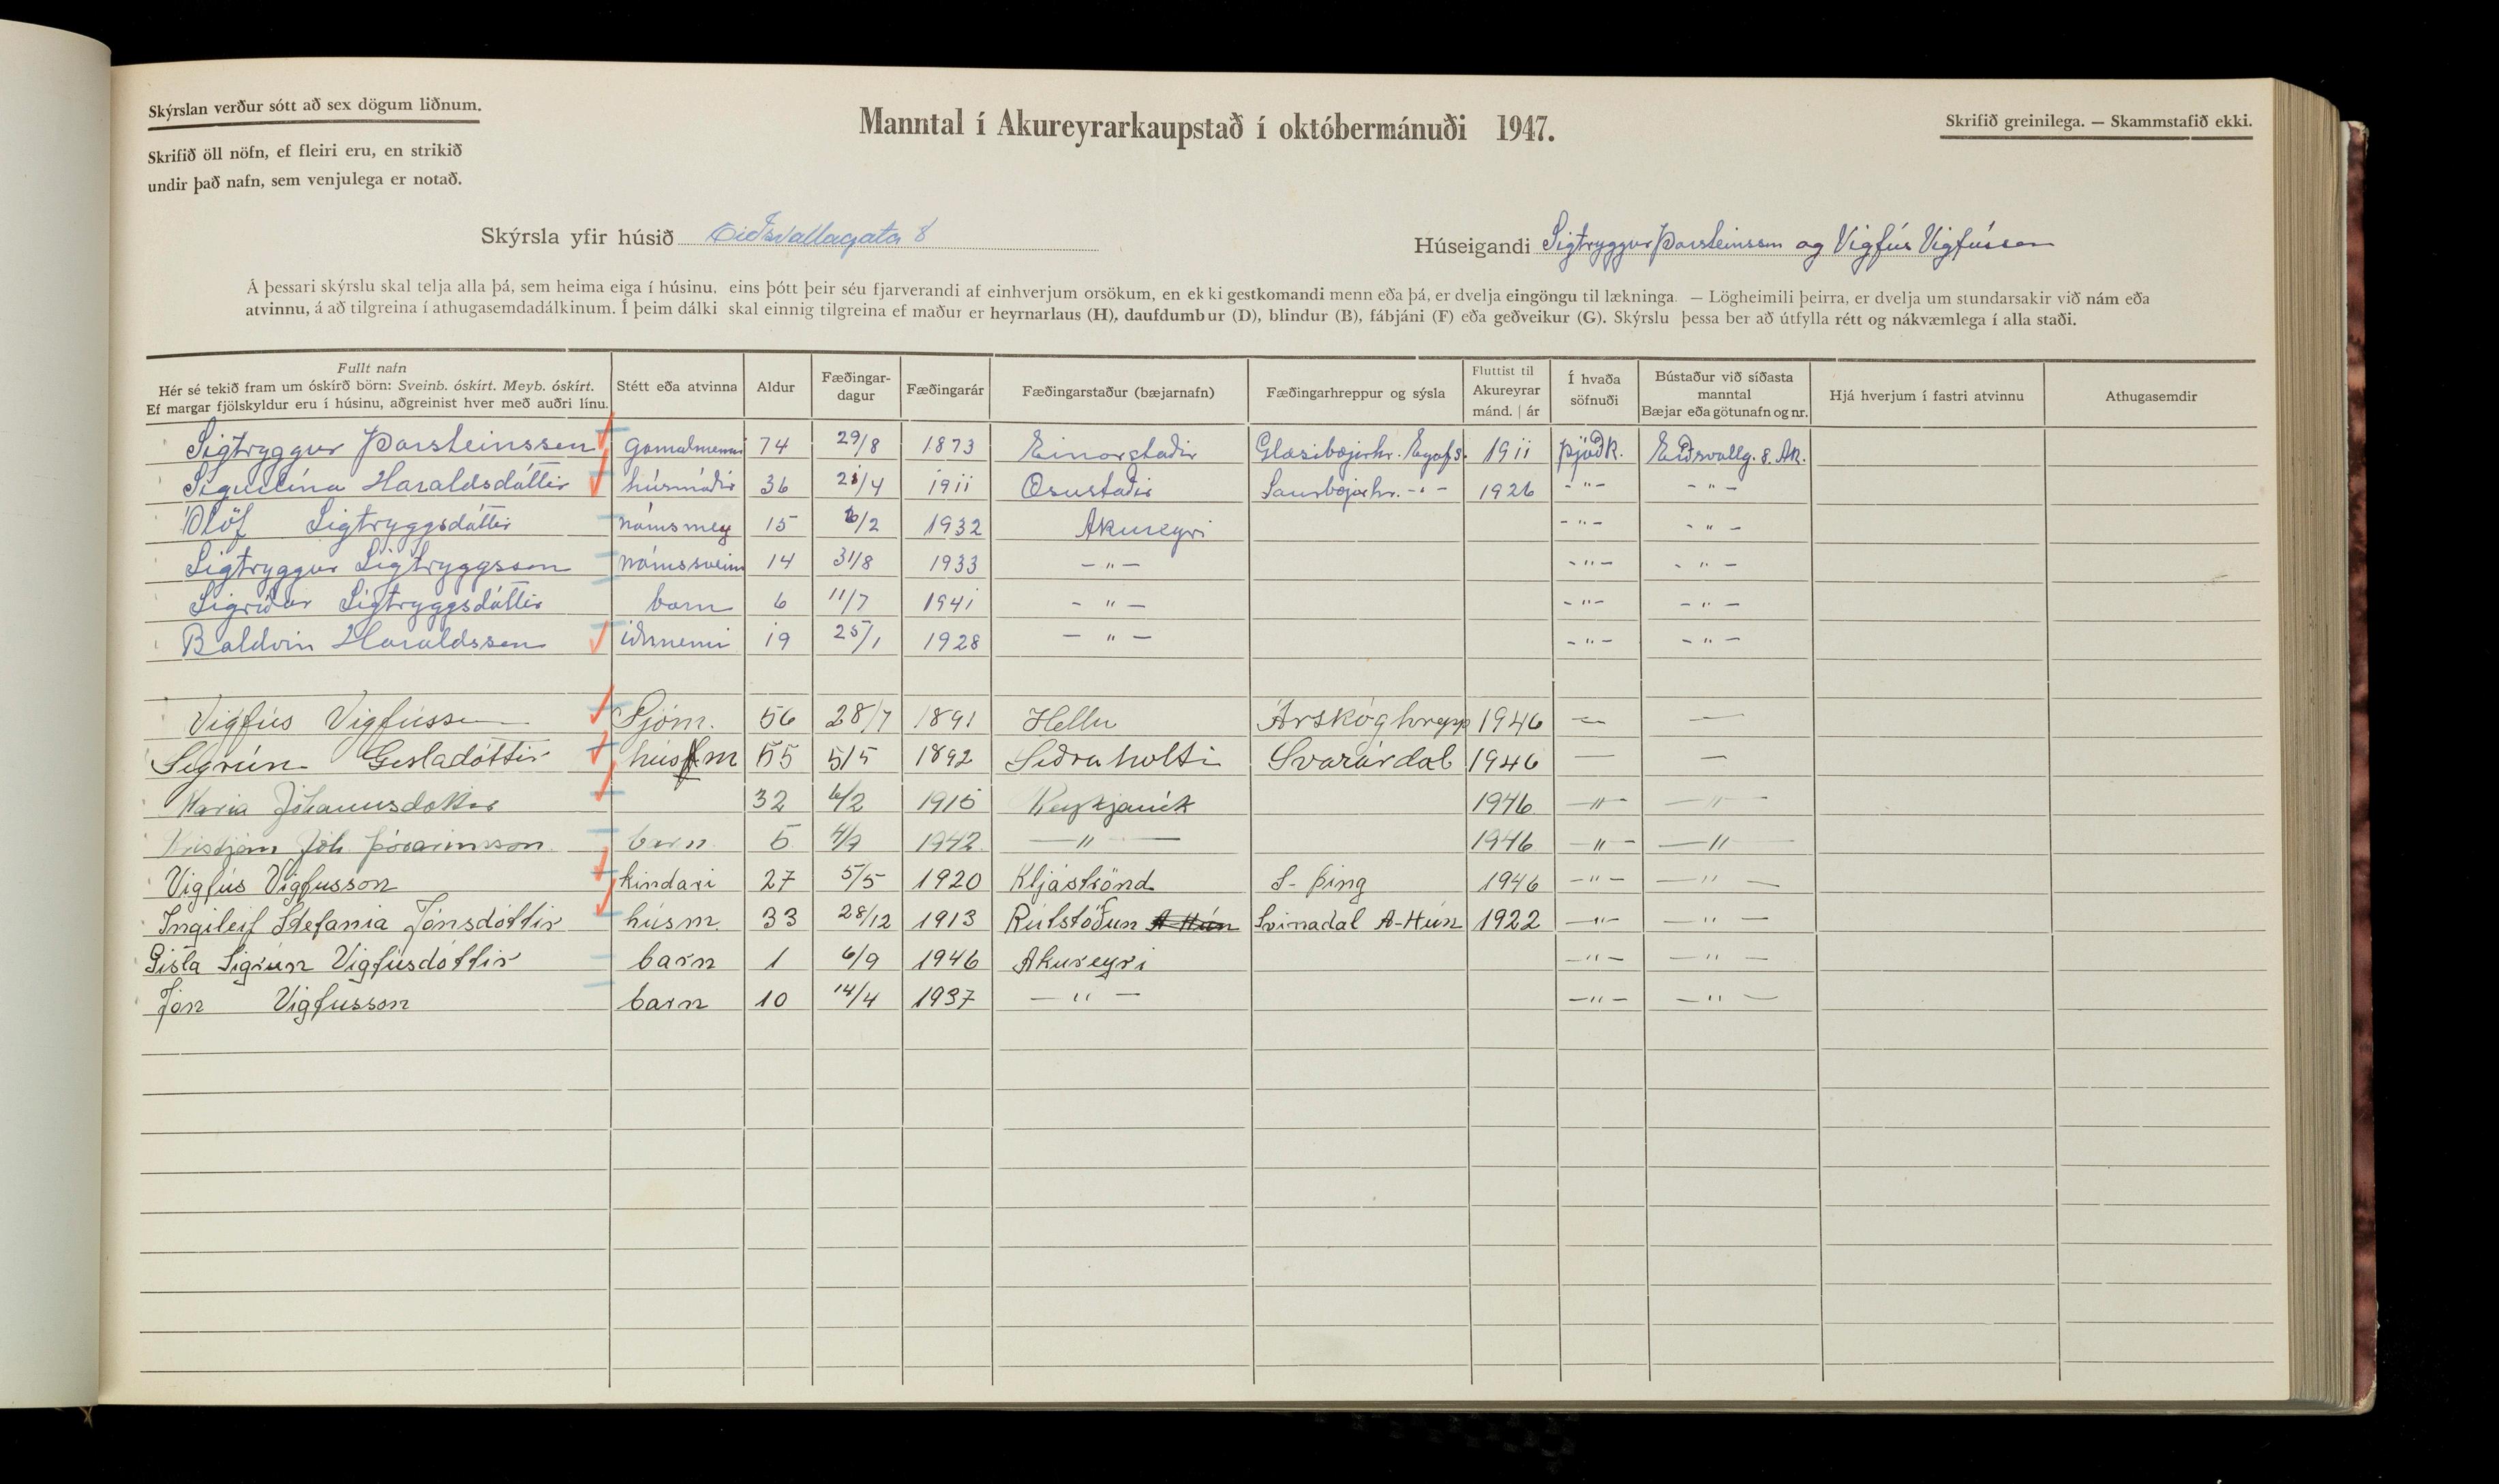 Skýrslan verður sótt að sex dögum liðnum.
Skrifið öll nöfn, ef fleiri eru, en strikið
undir það nafn, sem venjulega er notað.
Manntal í Akureyrarkaupstað í októbermánuði 1947.
Skrifið greinilega. — Skammstafið ekki.
Skýrsla yfir húsið Eiðsvallagata 8
Húseigandi Sigtryggur Þorsteinsson og Vigfús Vigfússon
Á þessari skýrslu skal telja alla þá, sem heima eiga í húsinu, eins þótt þeir séu fjarverandi af einhverjum orsökum, en ekki gestkomandi menn eða þá, er dvelja eingöngu til lækninga. — Lögheimili þeirra, er dvelja um stundarsakir við nám eða
atvinnu, á að tilgreina í athugasemdadálkinum. Í þeim dálki skal einnig tilgreina ef maður er heyrnarlaus (H), daufdumbur (D), blindur (B), fábjáni (F) eða geðveikur (G). Skýrslu þessa ber að útfylla rétt og nákvæmlega í alla staði.
Fullt nafn Hér sé tekið fram um óskírð börn: Sveinb. óskírt. Meyb. óskírt. Ef margar fjölskyldur eru í húsinu, aðgreinist hver með auðri línu. Stétt eða atvinna Aldur Fæðingar-dagur Fæðingarár Fæðingarstaður (bæjarnafn) Fæðingarhreppur og sýsla Fluttist til Akureyrar mánd. | ár Í hvaða söfnuði Bústaður við síðasta manntal Bæjar eða götunafn og nr. Hjá hverjum í fastri atvinnu Athugasemdir
Sigtryggur Þorsteinsson gamalmenni 74 29/8 1873 Einarstaðir Glæsibæjarhr. Eyafs. 1911 Þjóðk. Eiðsvallg. 8. Ak.
Siguelína Haraldsdóttir húsmóðir 36 21/4 1911 Æsustaðir Saurbæjarhr. -"- 1926 -"- -"-
Ólöf Sigtryggsdóttir námsmey 15 6/2 1932 Akureyri -"- -"-
Sigtryggur Sigtryggsson námssveinn 14 31/8 1933 -"- -"- -"-
Sigríður Sigtryggsdóttir barn 6 11/7 1941 -"- -"- -"-
Baldvin Haraldsson iðnnemi 19 25/1 1928 -"- -"- -"-
Vigfús Vigfússon Sjóm. 56 28/7 1891 Hellu Árskóghrepp 1946 — —
Sigrún Gisladóttir húsm 55 5/5 1892 Siðraholti Svarárdal 1946 — —
Maria Jóhannsdottir 32 6/2 1915 Reykjavík 1946 -"- -"-
Kristján Jóh. Þórarinsson barn 5 4/9 1942 -"- 1946 -"- -"-
Vigfús Vigfusson kindari 27 5/5 1920 Kljáströnd S- Þing 1946 -"- -"-
Ingileif Stefania Jónsdóttir húsm. 33 28/12 1913 Rútstöðun A Hún Svinadal A-Hún 1922 -"- -"-
Gisla Sigrún Vigfúsdóttir barn 1 6/9 1946 Akureyri -"- -"-
Jón Vigfusson barn 10 14/4 1937 -"- -"- -"-